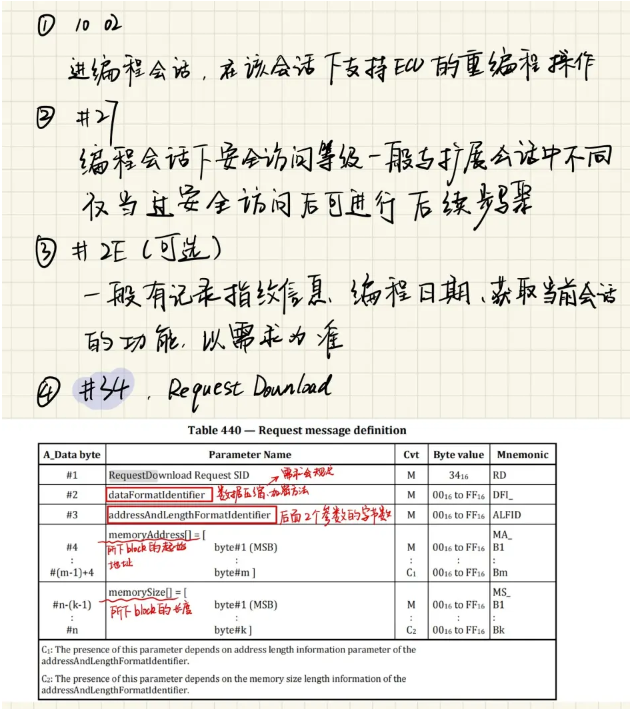 ① 10 02
进编程会话，在该会话下支持ECU的重编程操作
② #27
编程会话下安全访问等级一般与扩展会话中不同
仅当过安全访问后可进行后续步骤
③ #2E（可选）
一般有记录指纹信息、编程日期、获取当前会话
的功能，以需求为准
④ #34，Request Download
Table 440 — Request message definition
A_Data byte Parameter Name Cvt Byte value Mnemonic
#1 RequestDownload Request SID 需求会规定 M 34₁₆ RD
#2 dataFormatIdentifier 数据压缩、加密方法 M 00₁₆ to FF₁₆ DFI_
#3 addressAndLengthFormatIdentifier 后面2个参数的字节数 M 00₁₆ to FF₁₆ ALFID
memoryAddress[] = [ MA_
#4 所下block的起始 byte#1 (MSB) M 00₁₆ to FF₁₆ B1
: 地址 : : : :
#(m-1)+4 byte#m ] C₁ 00₁₆ to FF₁₆ Bm
memorySize[] = [ MS_
#n-(k-1) 所下block的长度 byte#1 (MSB) M 00₁₆ to FF₁₆ B1
: : : : :
#n byte#k ] C₂ 00₁₆ to FF₁₆ Bk
C₁: The presence of this parameter depends on address length information parameter of the
addressAndLengthFormatIdentifier.
C₂: The presence of this parameter depends on the memory size length information of the
addressAndLengthFormatIdentifier.